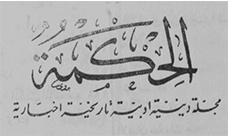 الحكمة
مجلة دينية ادبية تاريخية اخبارية